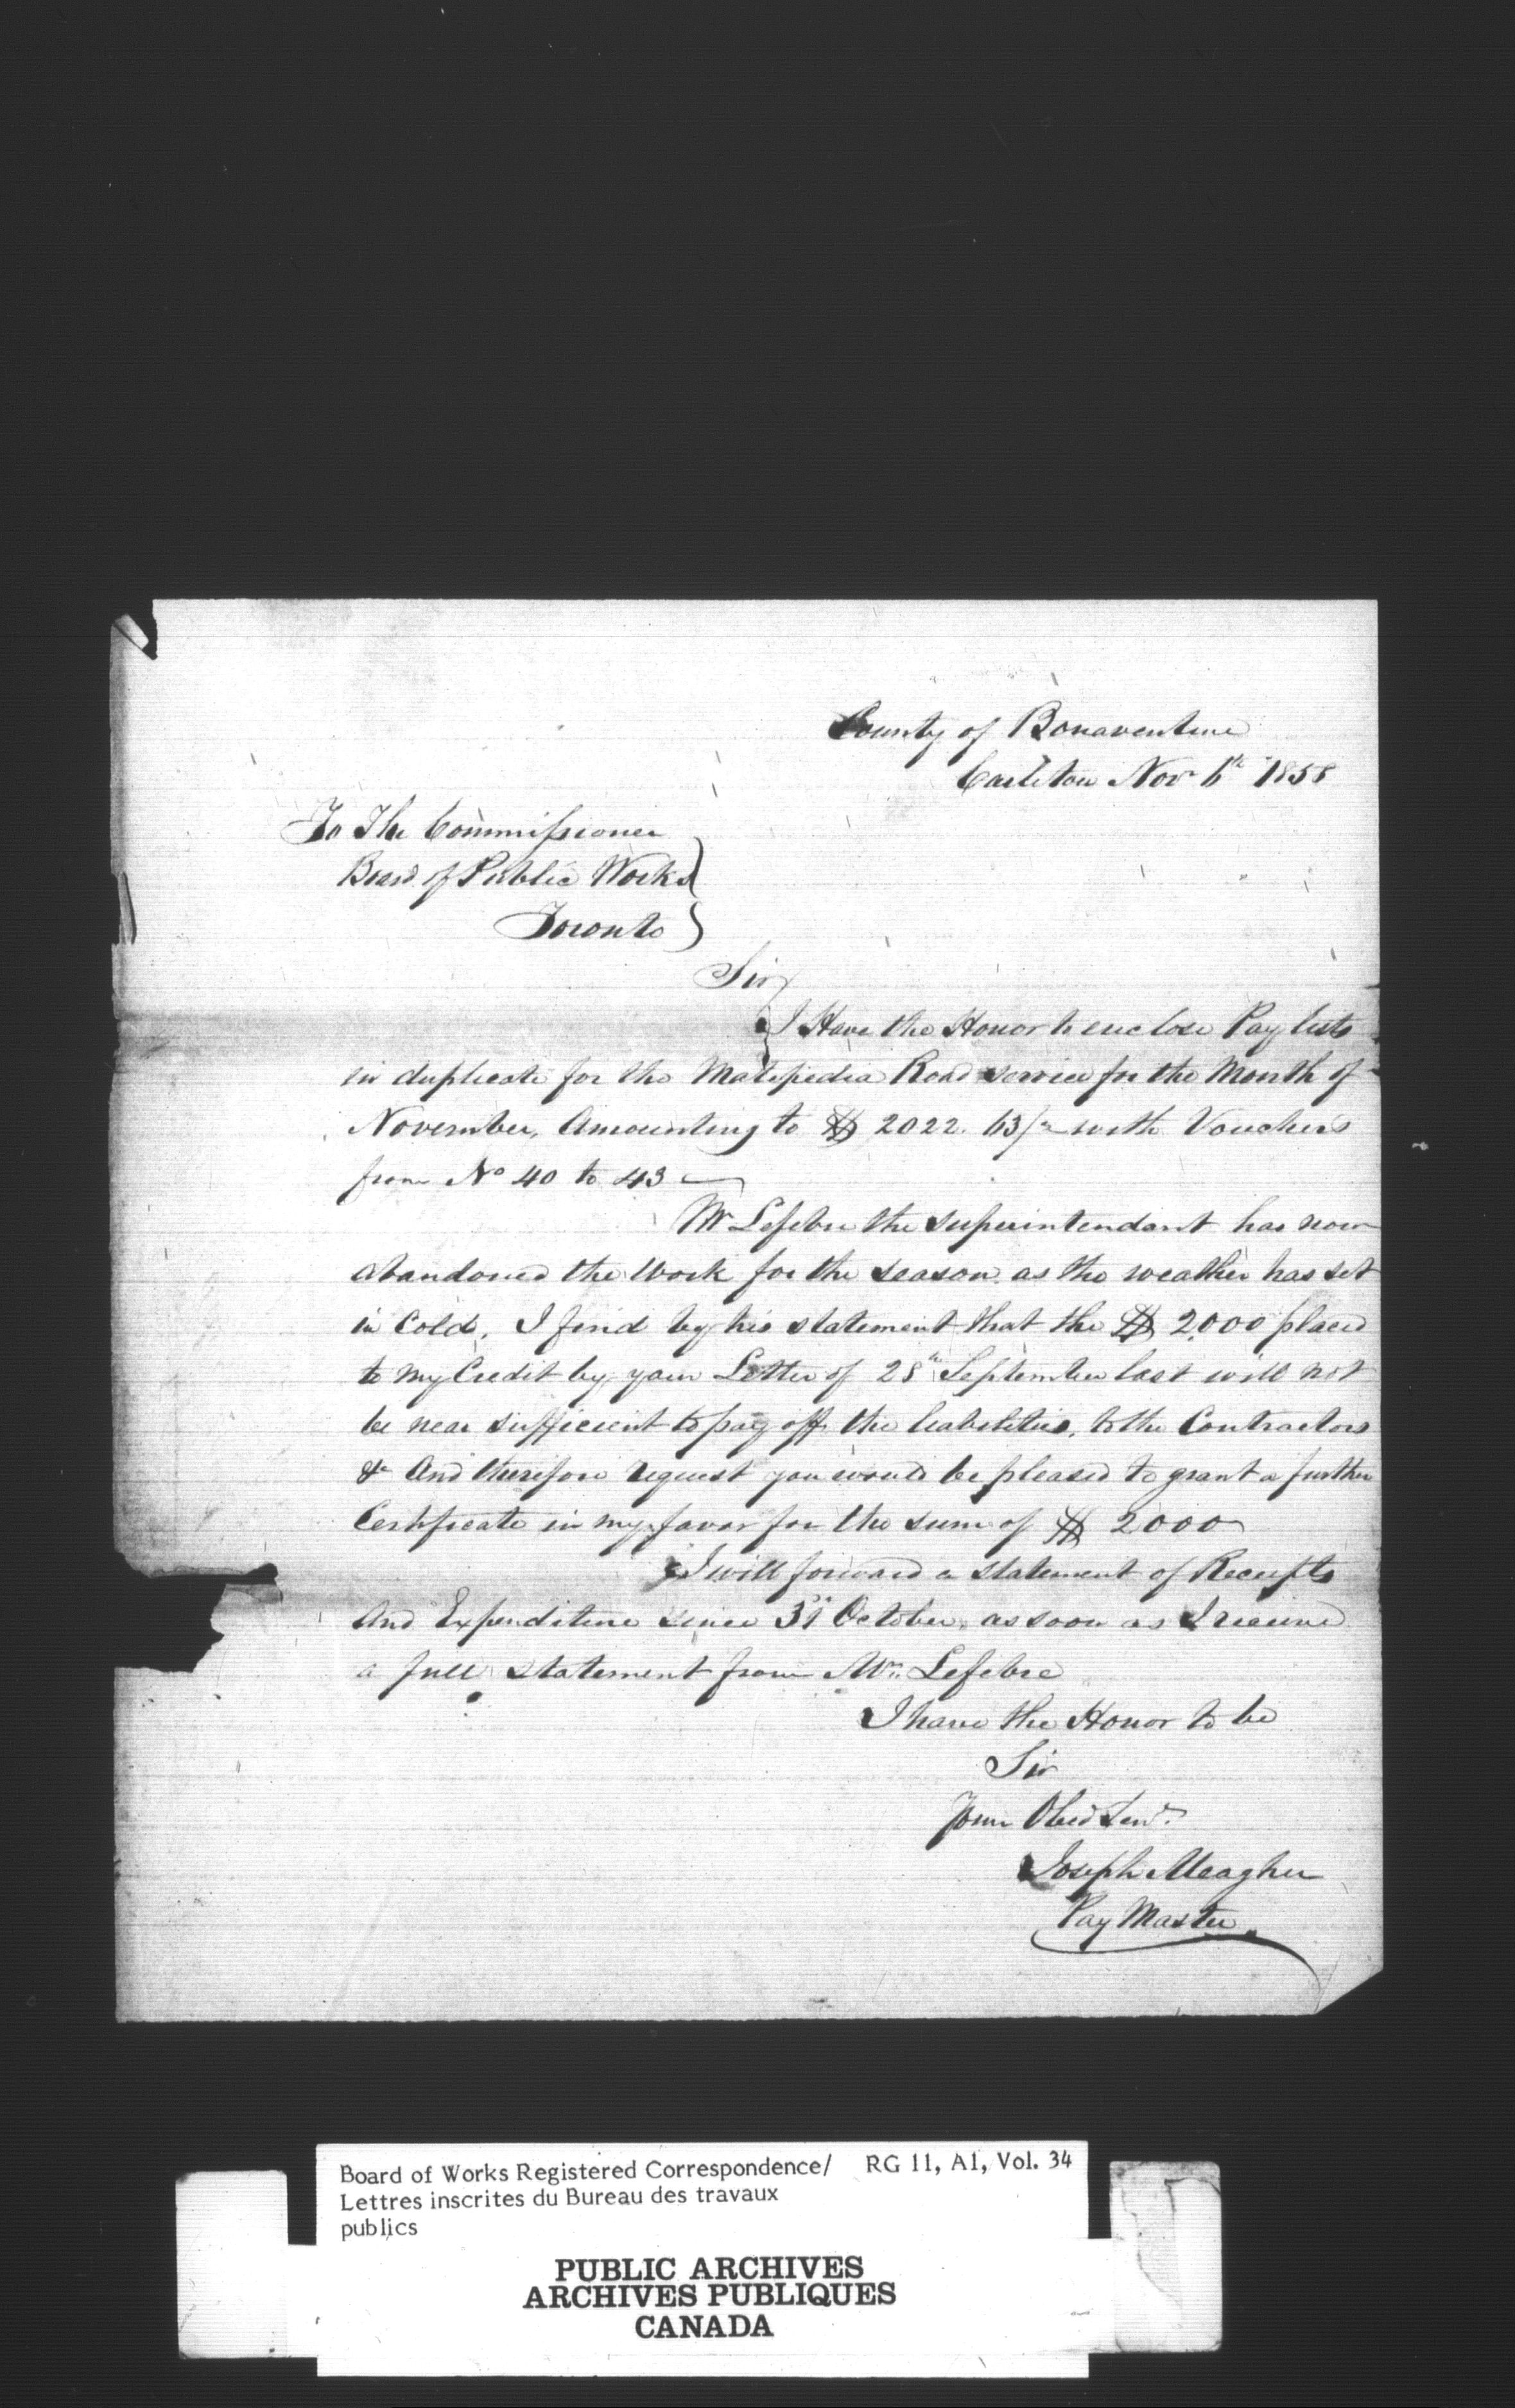 County of Bonaventure
Carleton Nov 6th 1858
To The Commissioner
Board of Public Works
Toronto
Sir
I Have the Honor to enclose Pay lists
in duplicate for the Matapedia Road service for the Month of
November, Amounting to $ 2022. 63/ with Vouchers
from No 40 to 43
Mr Lefebre the superintendant has now
abandoned the Work for the season as the weather has set
in Cold, I find by his statement that the $ 2,000 placed
to my Credit by your Letter of 28th September last will not
be near sufficient to pay off the liabilities, to the Contractors
&c And therefore request you would be pleased to grant a further
Certificate in my favor for the sum of $ 2000
I will forward a statement of Receipts
And Expenditure since 31st October, as soon as I receive
a full statement from Mr. Lefebre
I have the Honor to be
Sir
Your Obed Servt.
Joseph Meagher
Pay Master
Board of Works Registered Correspondence/ RG 11, A1, Vol. 34
Lettres inscrites du Bureau des travaux
publics
PUBLIC ARCHIVES
ARCHIVES PUBLIQUES
CANADA